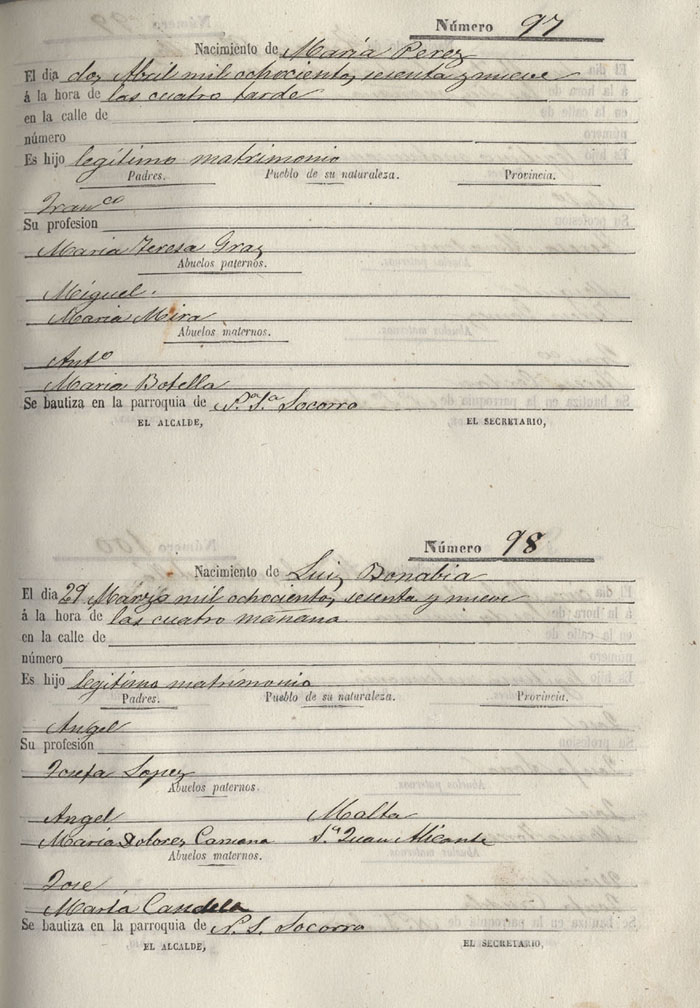 Número 97
Nacimiento de Maria Perez
El dia dos Abril mil ochocientos sesenta y nueve
á la hora de las cuatro tarde
en la calle de
número
Es hijo legítimo matrimonio
Padres. Pueblo de su naturaleza. Provincia.
Franco
Su profesion
Maria Teresa Gras
Abuelos paternos.
Miguel.
Maria Mira
Abuelos maternos.
Anto
Maria Botella
Se bautiza en la parroquia de Socorro
EL ALCALDE, EL SECRETARIO,
Número 98
Nacimiento de Luis Bonabia
El dia 29 Marzo mil ochocientos sesenta y nueve
á la hora de las cuatro mañana
en la calle de
número
Es hijo legítimo matrimonio
Padres. Pueblo de su naturaleza. Provincia.
Angel
Su profesión
Josefa Lopez
Abuelos paternos.
Angel Malta
Maria Dolores Carmona Sn Juan Alicante
Abuelos maternos.
José
Marta Candela
Se bautiza en la parroquia de N. S. Socorro
EL ALCALDE, EL SECRETARIO,